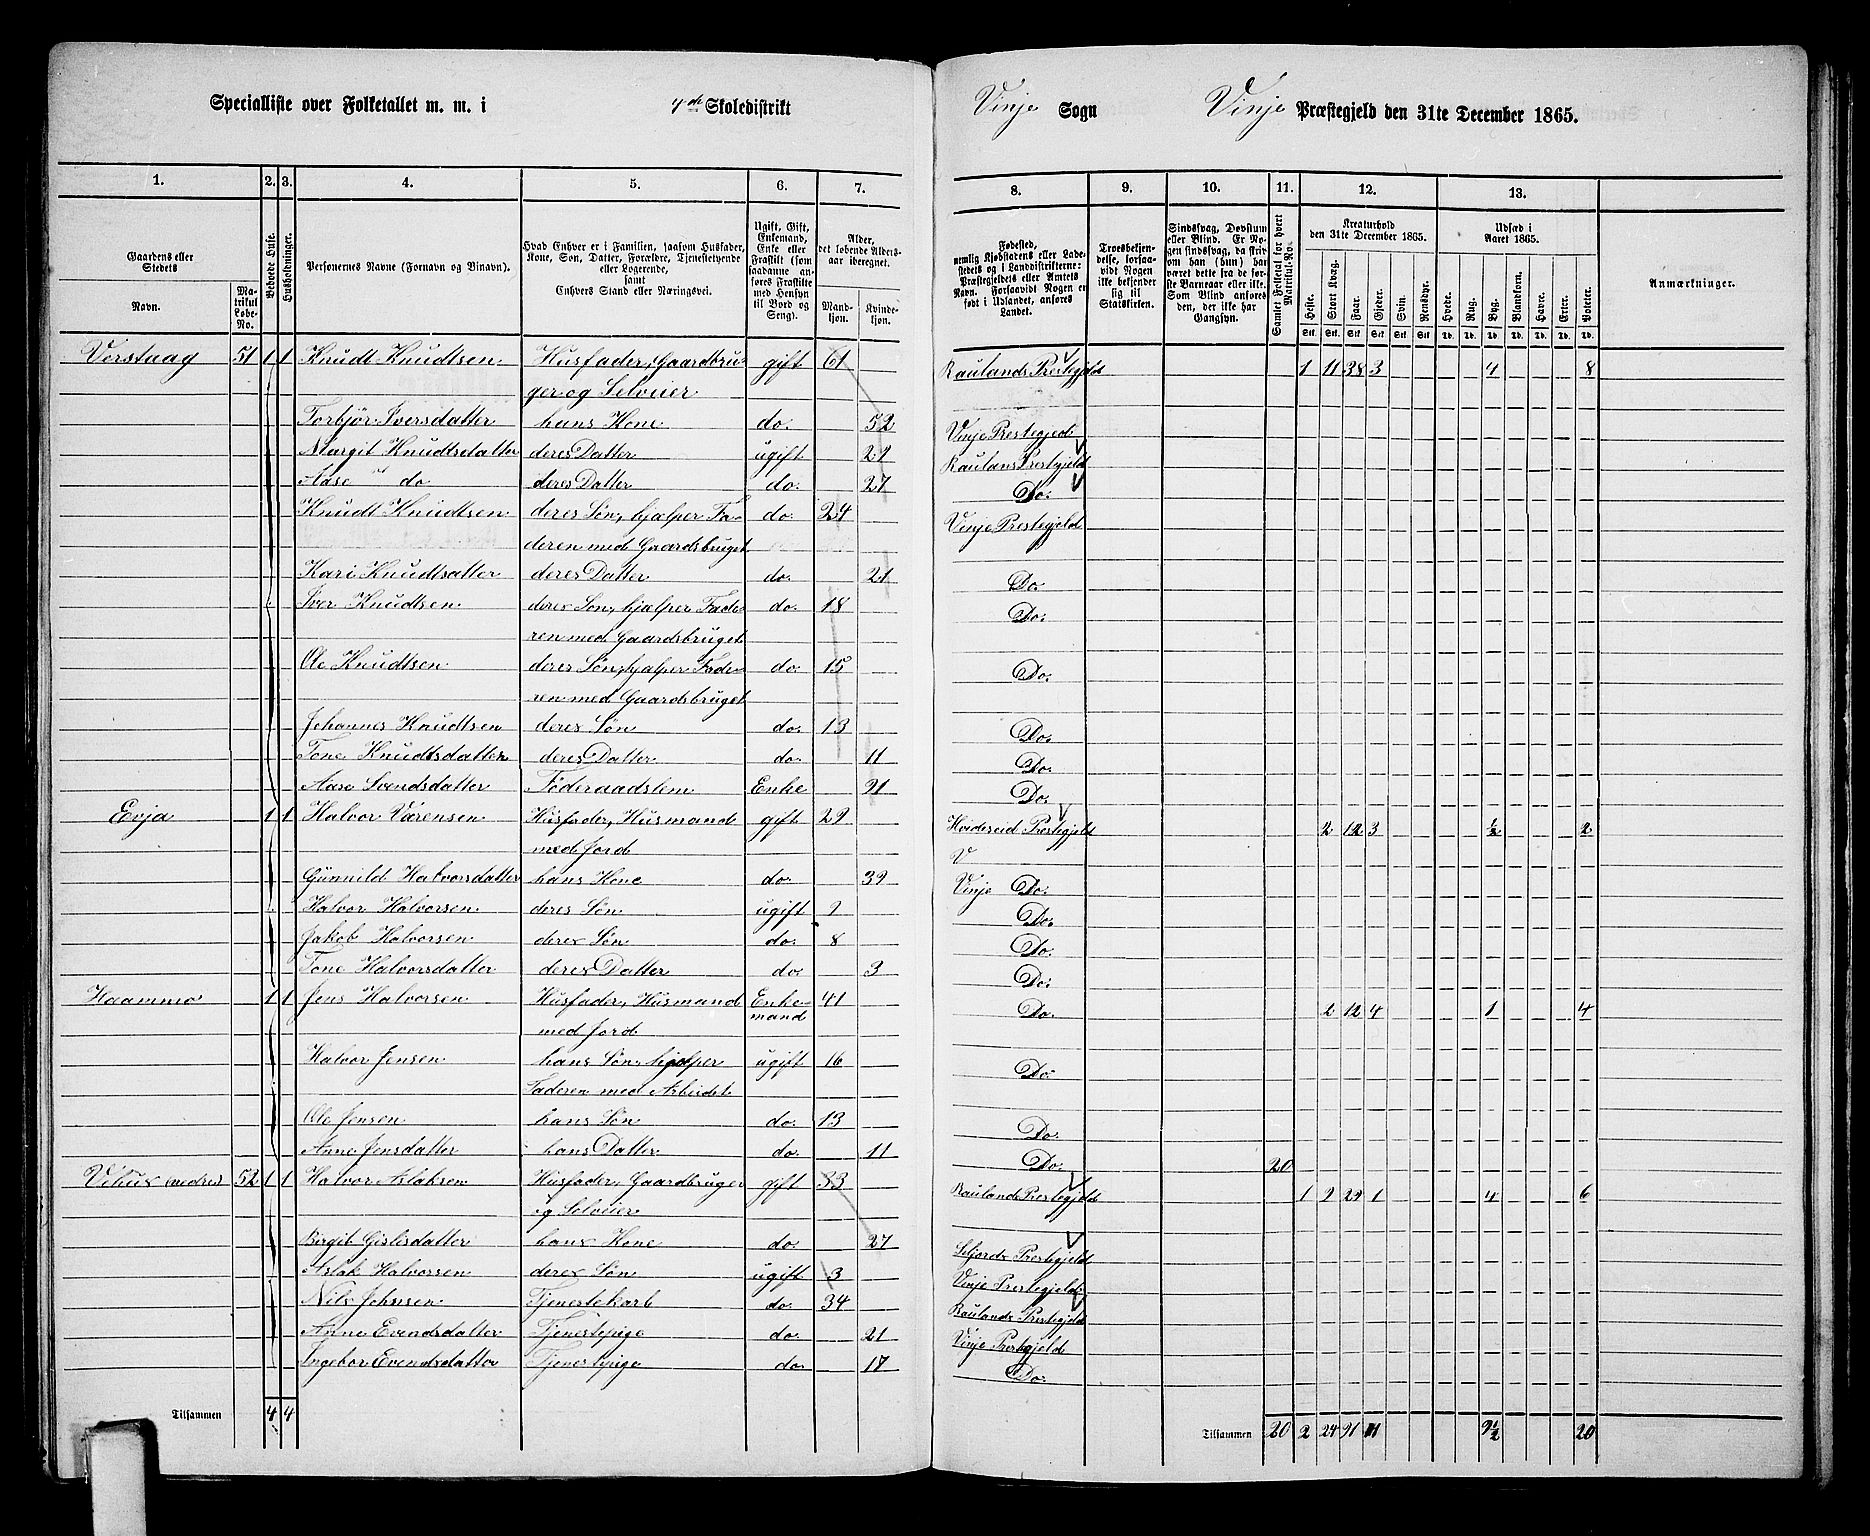 Specialliste over Folketallet m. m. i 4de Skoledistrikt Vinje Sogn Vinje Præstegjeld den 31te December 1865.
1. 2. 3. 4. 5. 6. 7. 8. 9. 10. 11. 12. 13.
Gaardens eller Stedets
Navn.
Matrikul Løbe-No.
Beboede Huse.
Husholdninger.
Personernes Navne (Fornavn og Binavn).
Hvad Enhver er i Familien, saasom Husfader,
Kone, Søn, Datter, Forældre, Tjenestetyende
eller Logerende,
samt
Enhvers Stand eller Næringsvei.
Ugift, Gift,
Enkemand,
Enke eller
Fraskilt (som
saadanne an-
føres Fraskilte
med Hensyn
til Bord og
Seng).
Alder,
det løbende Alders-
aar iberegnet.
Mand-
kjøn.
Kvinde-
kjøn.
Fødested,
nemlig Kjøbstadens eller Lade-
stedets og i Landdistrikterne:
Præstegjeldets eller Amtets
Navn. Forsaavidt Nogen er
født i Udlandet, anføres
Landet.
Troesbekjen-
delse, forsaa-
vidt Nogen
ikke bekjender
sig til
Statskirken.
Sindssvag, Døvstum
eller Blind. Er No-
gen sindssvag, da skriv
om han (hun) har
været dette fra de før-
ste Barneaar eller ikke.
Som Blind anføres
den, der ikke har
Gangsyn.
Samlet Folketal for hvert Matrikul-No.
Kreaturhold
den 31te December 1865.
Heste. Stort Kvæg. Faar. Gjeder. Svin. Rensdyr.
Stk. Stk. Stk. Stk. Stk. Stk.
Udsæd i
Aaret 1865.
Hvede. Rug. Byg. Blandkorn. Havre. Erter. Poteter.
Td. Td. Td. Td. Td. Td. Td.
Anmærkninger.
Verstaag 51 1 1 Knudt Knudtsen Husfader, Gaardbru- gift 61 Raulands Prestegjeld 1 11 38 3 4 8
ger og Selveier
Torbjør Iversdatter hans Kone do. 52 Vinje Prestegjeld
Margit Knudtsdatter deres Datter ugift 29 Raulans Prestegjeld
Aase do deres Datter do. 27 Do.
Knudt Knudtsen deres Søn, hjælper Fa- do. 24 Vinje Prestegjeld
deren med Gaardsbruget
Kari Knudtsatter deres Datter do. 21 Do.
Iver Knudtsen deres Søn, hjælper Fade- do. 18 Do.
ren med Gaardsbruget
Ole Knudtsen deres Søn, hjælper Fade- do. 15 Do.
ren med Gaardsbruget
Johannes Knudtsen deres Søn do. 13 Do.
Tone Knudtsdatter deres Datter do. 11 Do.
Aase Svendsdatter Føderaadslem Enke 91 Do.
Evja 1 1 Halvor Värensen Husfader, Husmand gift 29 Hvideseid Prestegjeld 2 12 3 ½ 2
med jord V
Günnild Halvorsdatter hans Kone do. 39 Vinje Do.
Halvor Halvorsen deres Søn ugift 9 Do.
Jakob Halvorsen deres Søn do. 8 Do.
Tone Halvorsdatter deres Datter do. 3 Do.
Haammo 1 1 Jens Halvorsen Husfader, Husmand Enke- 41 Do. 2 12 4 1 4
med jord mand
Halvor Jensen hans Søn, hjelper ugift 16 Do.
Faderen med Arbeidet
Ole Jensen hans Søn do. 13 Do.
Anne Jensdatter hans Datter do. 11 Do. 20
nedre 52 1 1 Halvor Aslaksen Husfader, Gaardbruger gift 33 Raulands Prestegjeld 1 9 29 1 4 6
og Selveier
Birgit Gislisdatter hans Kone do. 27 Seljords Prestegjeld
Aslak Halvorsen deres Søn ugift 3 Vinje Prestegjeld
Nils Johnsen Tjenestekarl do. 34 Raulands Prestegjeld
Anne Evendsdatter Tjenestepige do. 21 Vinje Prestegjeld
Ingebor Evendsdatter Tjenestepige do. 17 Do.
Tilsammen 4 4 Tilsammen 20 2 24 91 11 9½ 20